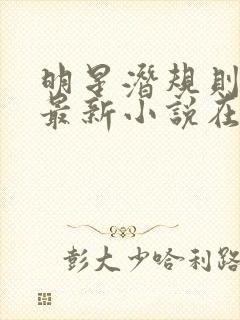 明星潛規則
最新小說在
彭大少哈利路